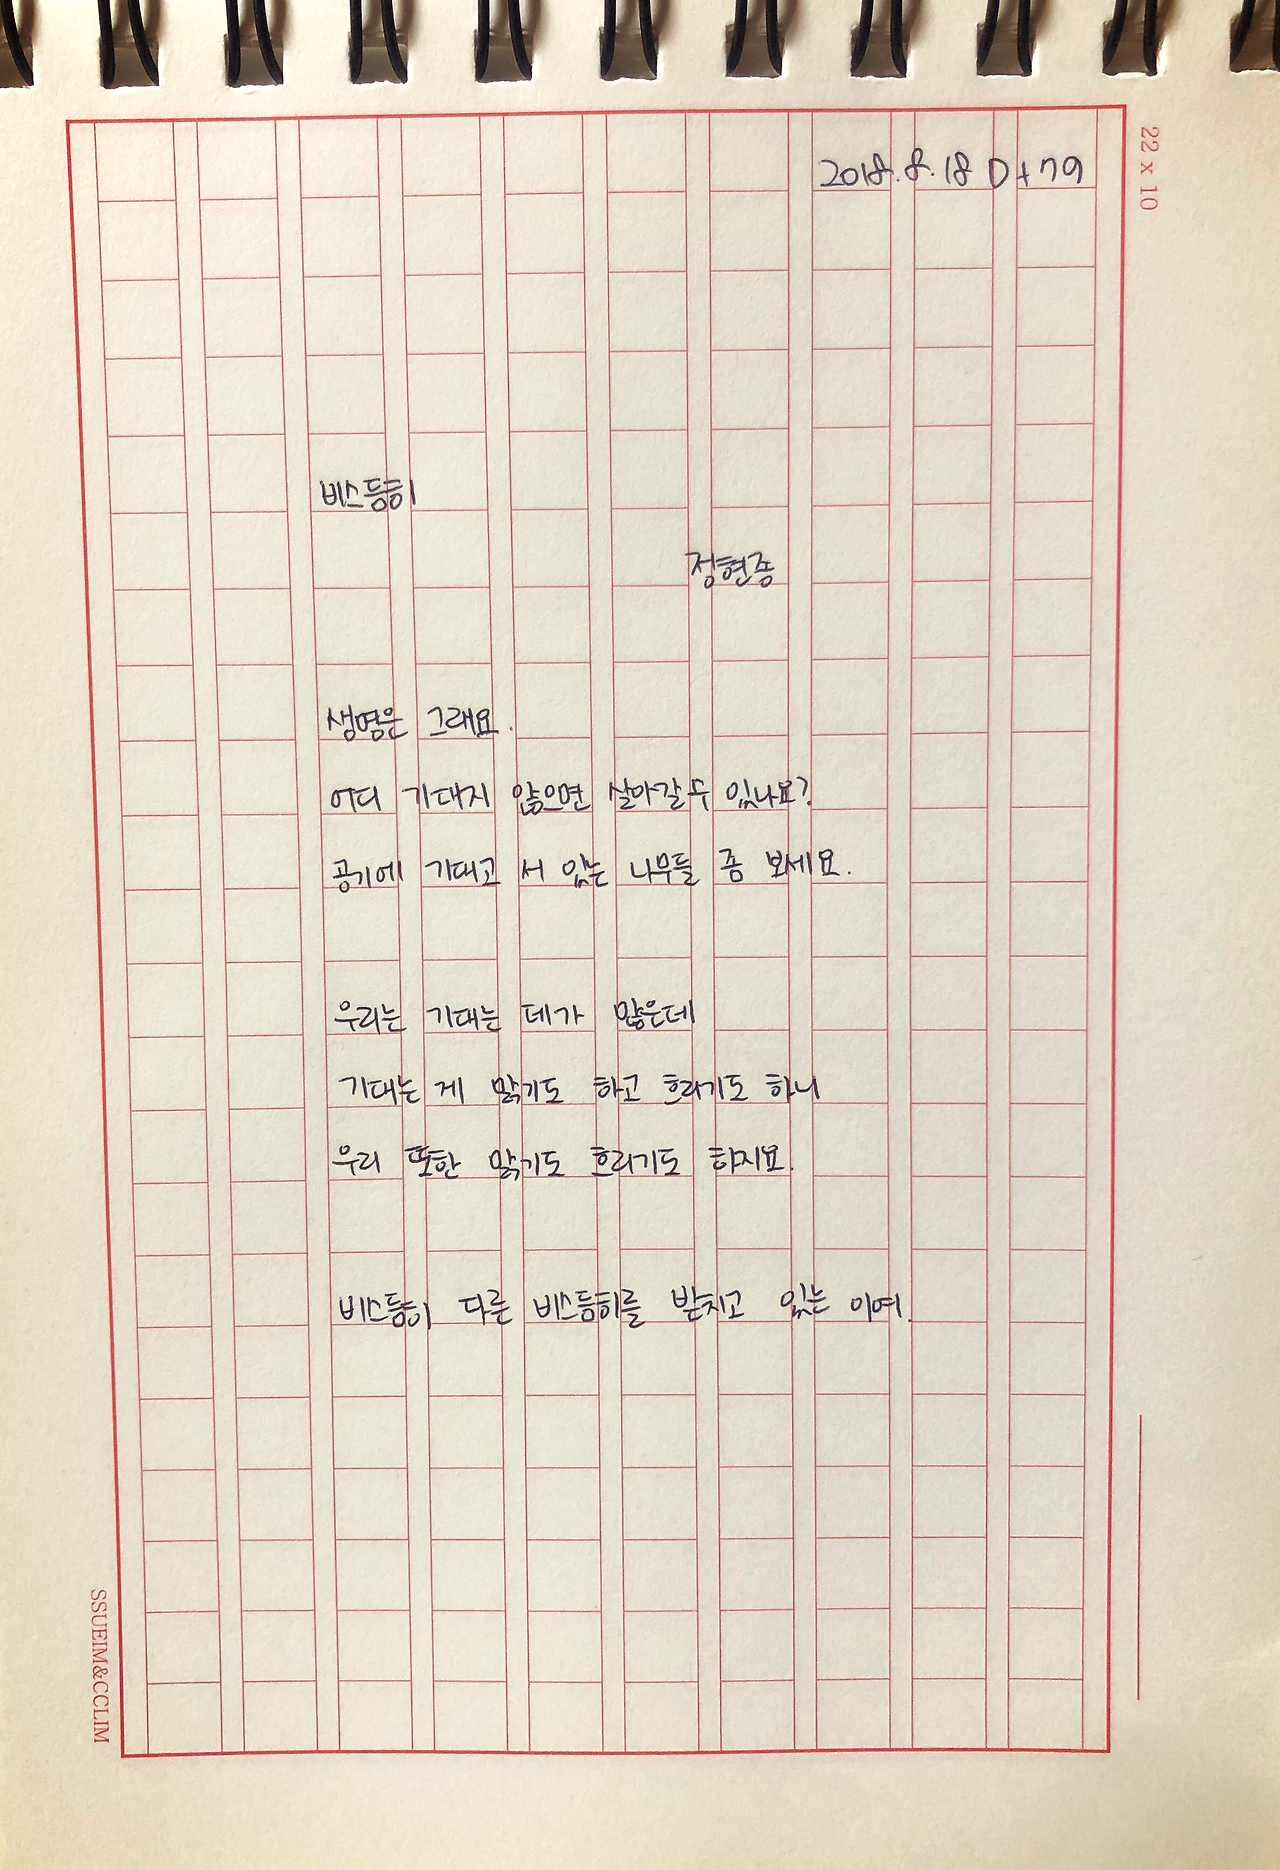 22 x 10
2018.8.18 D+79
비스듬히
정현종
생명은 그래요.
어디 기대지 않으면 살아갈 수 있나요?
공기에 기대고 서 있는 나무들 좀 보세요.
우리는 기대는 데가 많은데
기대는 게 맑기도 하고 흐리기도 하니
우리 또한 맑기도 흐리기도 하지요.
비스듬히 다른 비스듬히를 받치고 있는 이여.
SSUEIM&CCLIM